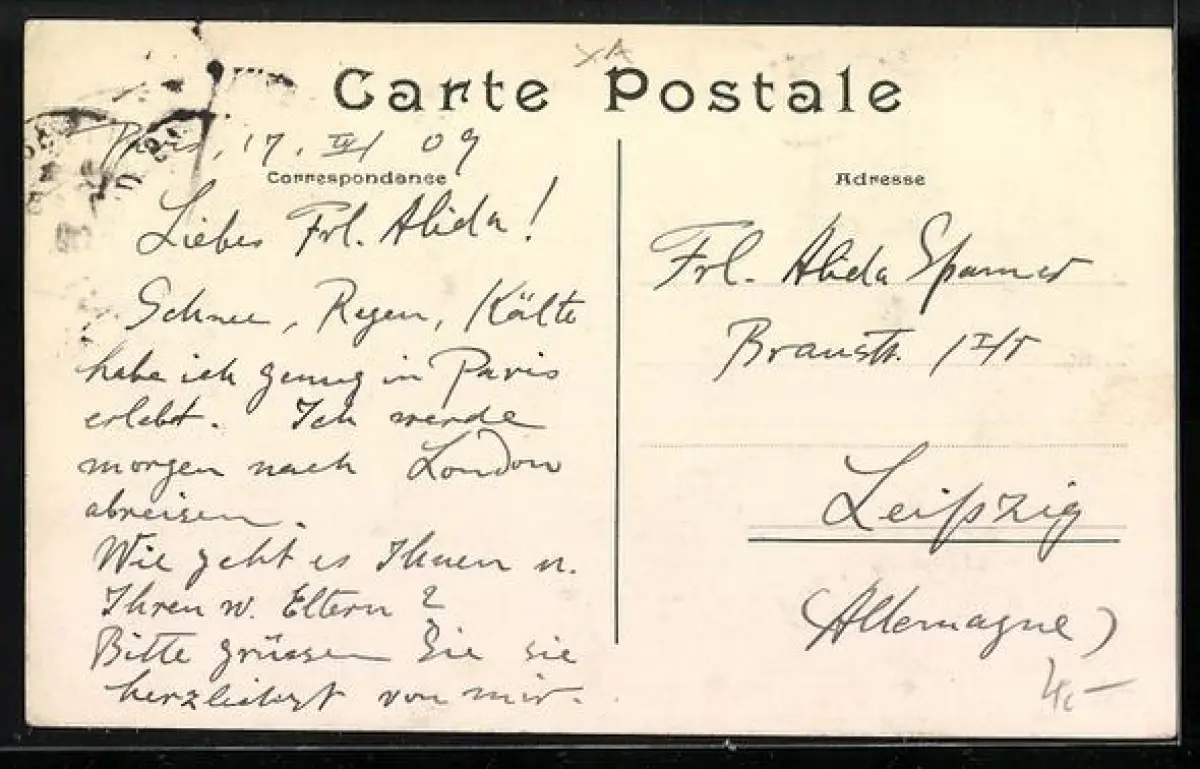 Carte Postale
Paris, 17. III 09
Correspondance
Liebes Frl. Alida!
Schnee, Regen, Kälte
habe ich genug in Paris
erlebt. Ich werde
morgen nach London
abreisen.
Wie geht es Ihnen u.
Ihren w. Eltern?
Bitte grüssen Sie sie
herzlichst von mir.
Adresse
Frl. Alida Spamer
Braustr.
Leipzig
(Allemagne)